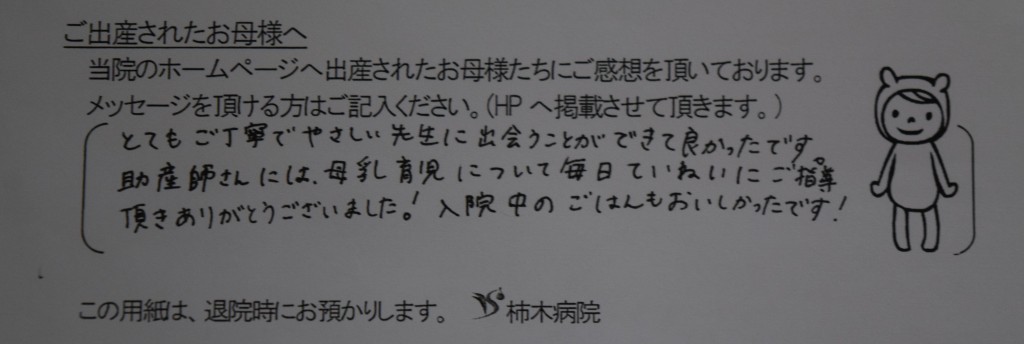 ご出産されたお母様へ
当院のホームページへ出産されたお母様たちにご感想を頂いております。
メッセージを頂ける方はご記入ください。(HPへ掲載させて頂きます。)
とてもご丁寧でやさしい先生に出会うことができて良かったです。
助産師さんには、母乳育児について毎日ていねいにご指導
頂きありがとうございました!入院中のごはんもおいしかったです!
この用紙は、退院時にお預かりします。 柿木病院